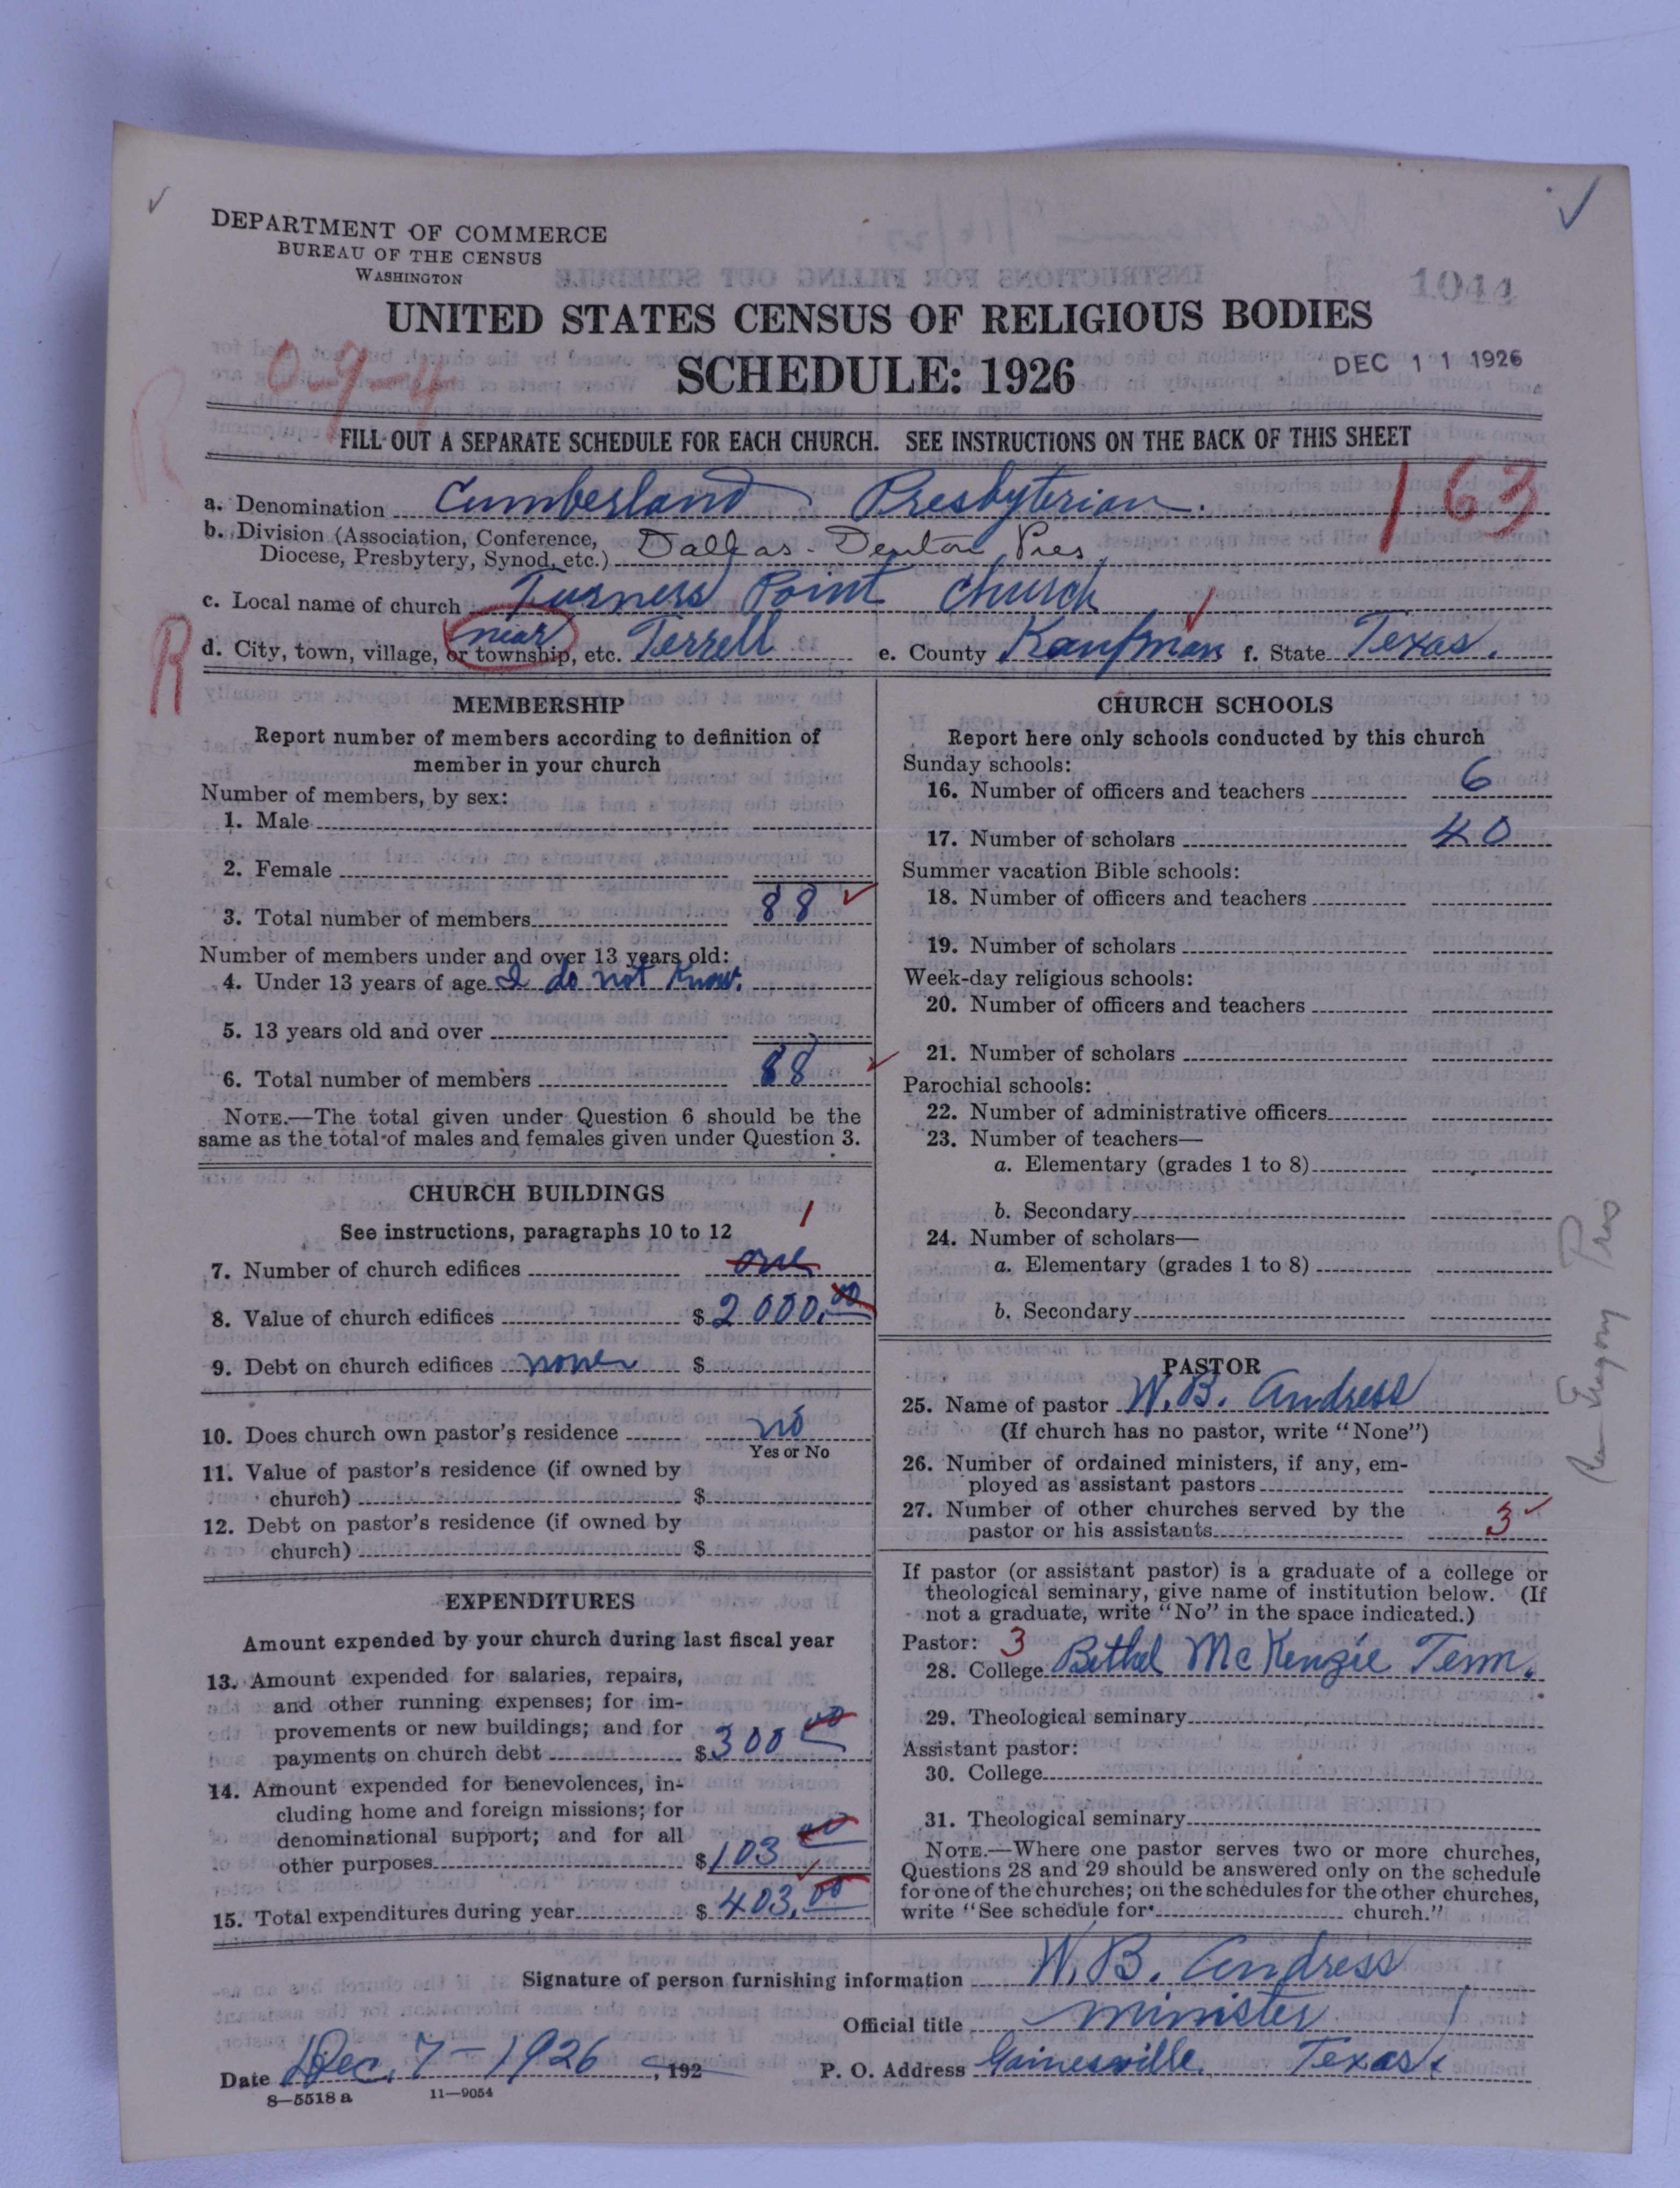 DEPARTMENT OF COMMERCE
BUREAU OF THE CENSUS
WASHINGTON
1044
UNITED STATES CENSUS OF RELIGIOUS BODIES
SCHEDULE: 1926
DEC 11 1926
0-9-4
R
FILL OUT A SEPARATE SCHEDULE FOR EACH CHURCH. SEE INSTRUCTIONS ON THE BACK OF THIS SHEET
163
a. Denomination Cumberland Presbyterian.
b. Division (Association, Conference, Diocese, Presbytery, Synod, etc.) Dallas-Denton Pres
c. Local name of church Turners Point Church
R
d. City, town, village, or township, etc. near Terrell e. County Kaufman f. State Texas.
MEMBERSHIP
Report number of members according to definition of
member in your church
Number of members, by sex:
1. Male
2. Female
3. Total number of members 88
Number of members under and over 13 years old:
4. Under 13 years of age I do not know.
5. 13 years old and over
6. Total number of members 88
NOTE.—The total given under Question 6 should be the
same as the total of males and females given under Question 3.
CHURCH BUILDINGS
See instructions, paragraphs 10 to 12
1
7. Number of church edifices one
8. Value of church edifices $2000.00
9. Debt on church edifices none $
10. Does church own pastor's residence no
Yes or No
11. Value of pastor's residence (if owned by
church) $
12. Debt on pastor's residence (if owned by
church) $
EXPENDITURES
Amount expended by your church during last fiscal year
13. Amount expended for salaries, repairs,
and other running expenses; for im-
provements or new buildings; and for
payments on church debt $300 00
14. Amount expended for benevolences, in-
cluding home and foreign missions; for
denominational support; and for all
other purposes $103 00
15. Total expenditures during year $403.00
CHURCH SCHOOLS
Report here only schools conducted by this church
Sunday schools:
16. Number of officers and teachers 6
17. Number of scholars 40
Summer vacation Bible schools:
18. Number of officers and teachers
19. Number of scholars
Week-day religious schools:
20. Number of officers and teachers
21. Number of scholars
Parochial schools:
22. Number of administrative officers
23. Number of teachers—
a. Elementary (grades 1 to 8)
b. Secondary
24. Number of scholars—
a. Elementary (grades 1 to 8)
b. Secondary
PASTOR
25. Name of pastor W. B. Andress
(If church has no pastor, write "None")
26. Number of ordained ministers, if any, em-
ployed as assistant pastors
27. Number of other churches served by the
pastor or his assistants 3
If pastor (or assistant pastor) is a graduate of a college or
theological seminary, give name of institution below. (If
not a graduate, write "No" in the space indicated.)
Pastor: 3
28. College Bethel McKenzie Tenn.
29. Theological seminary
Assistant pastor:
30. College
31. Theological seminary
NOTE.—Where one pastor serves two or more churches,
Questions 28 and 29 should be answered only on the schedule
for one of the churches; on the schedules for the other churches,
write "See schedule for church."
Signature of person furnishing information W. B. Andress
Official title minister
Date Dec. 7-1926, 192 P. O. Address Gainesville, Texas.
8—5518 a 11—9054